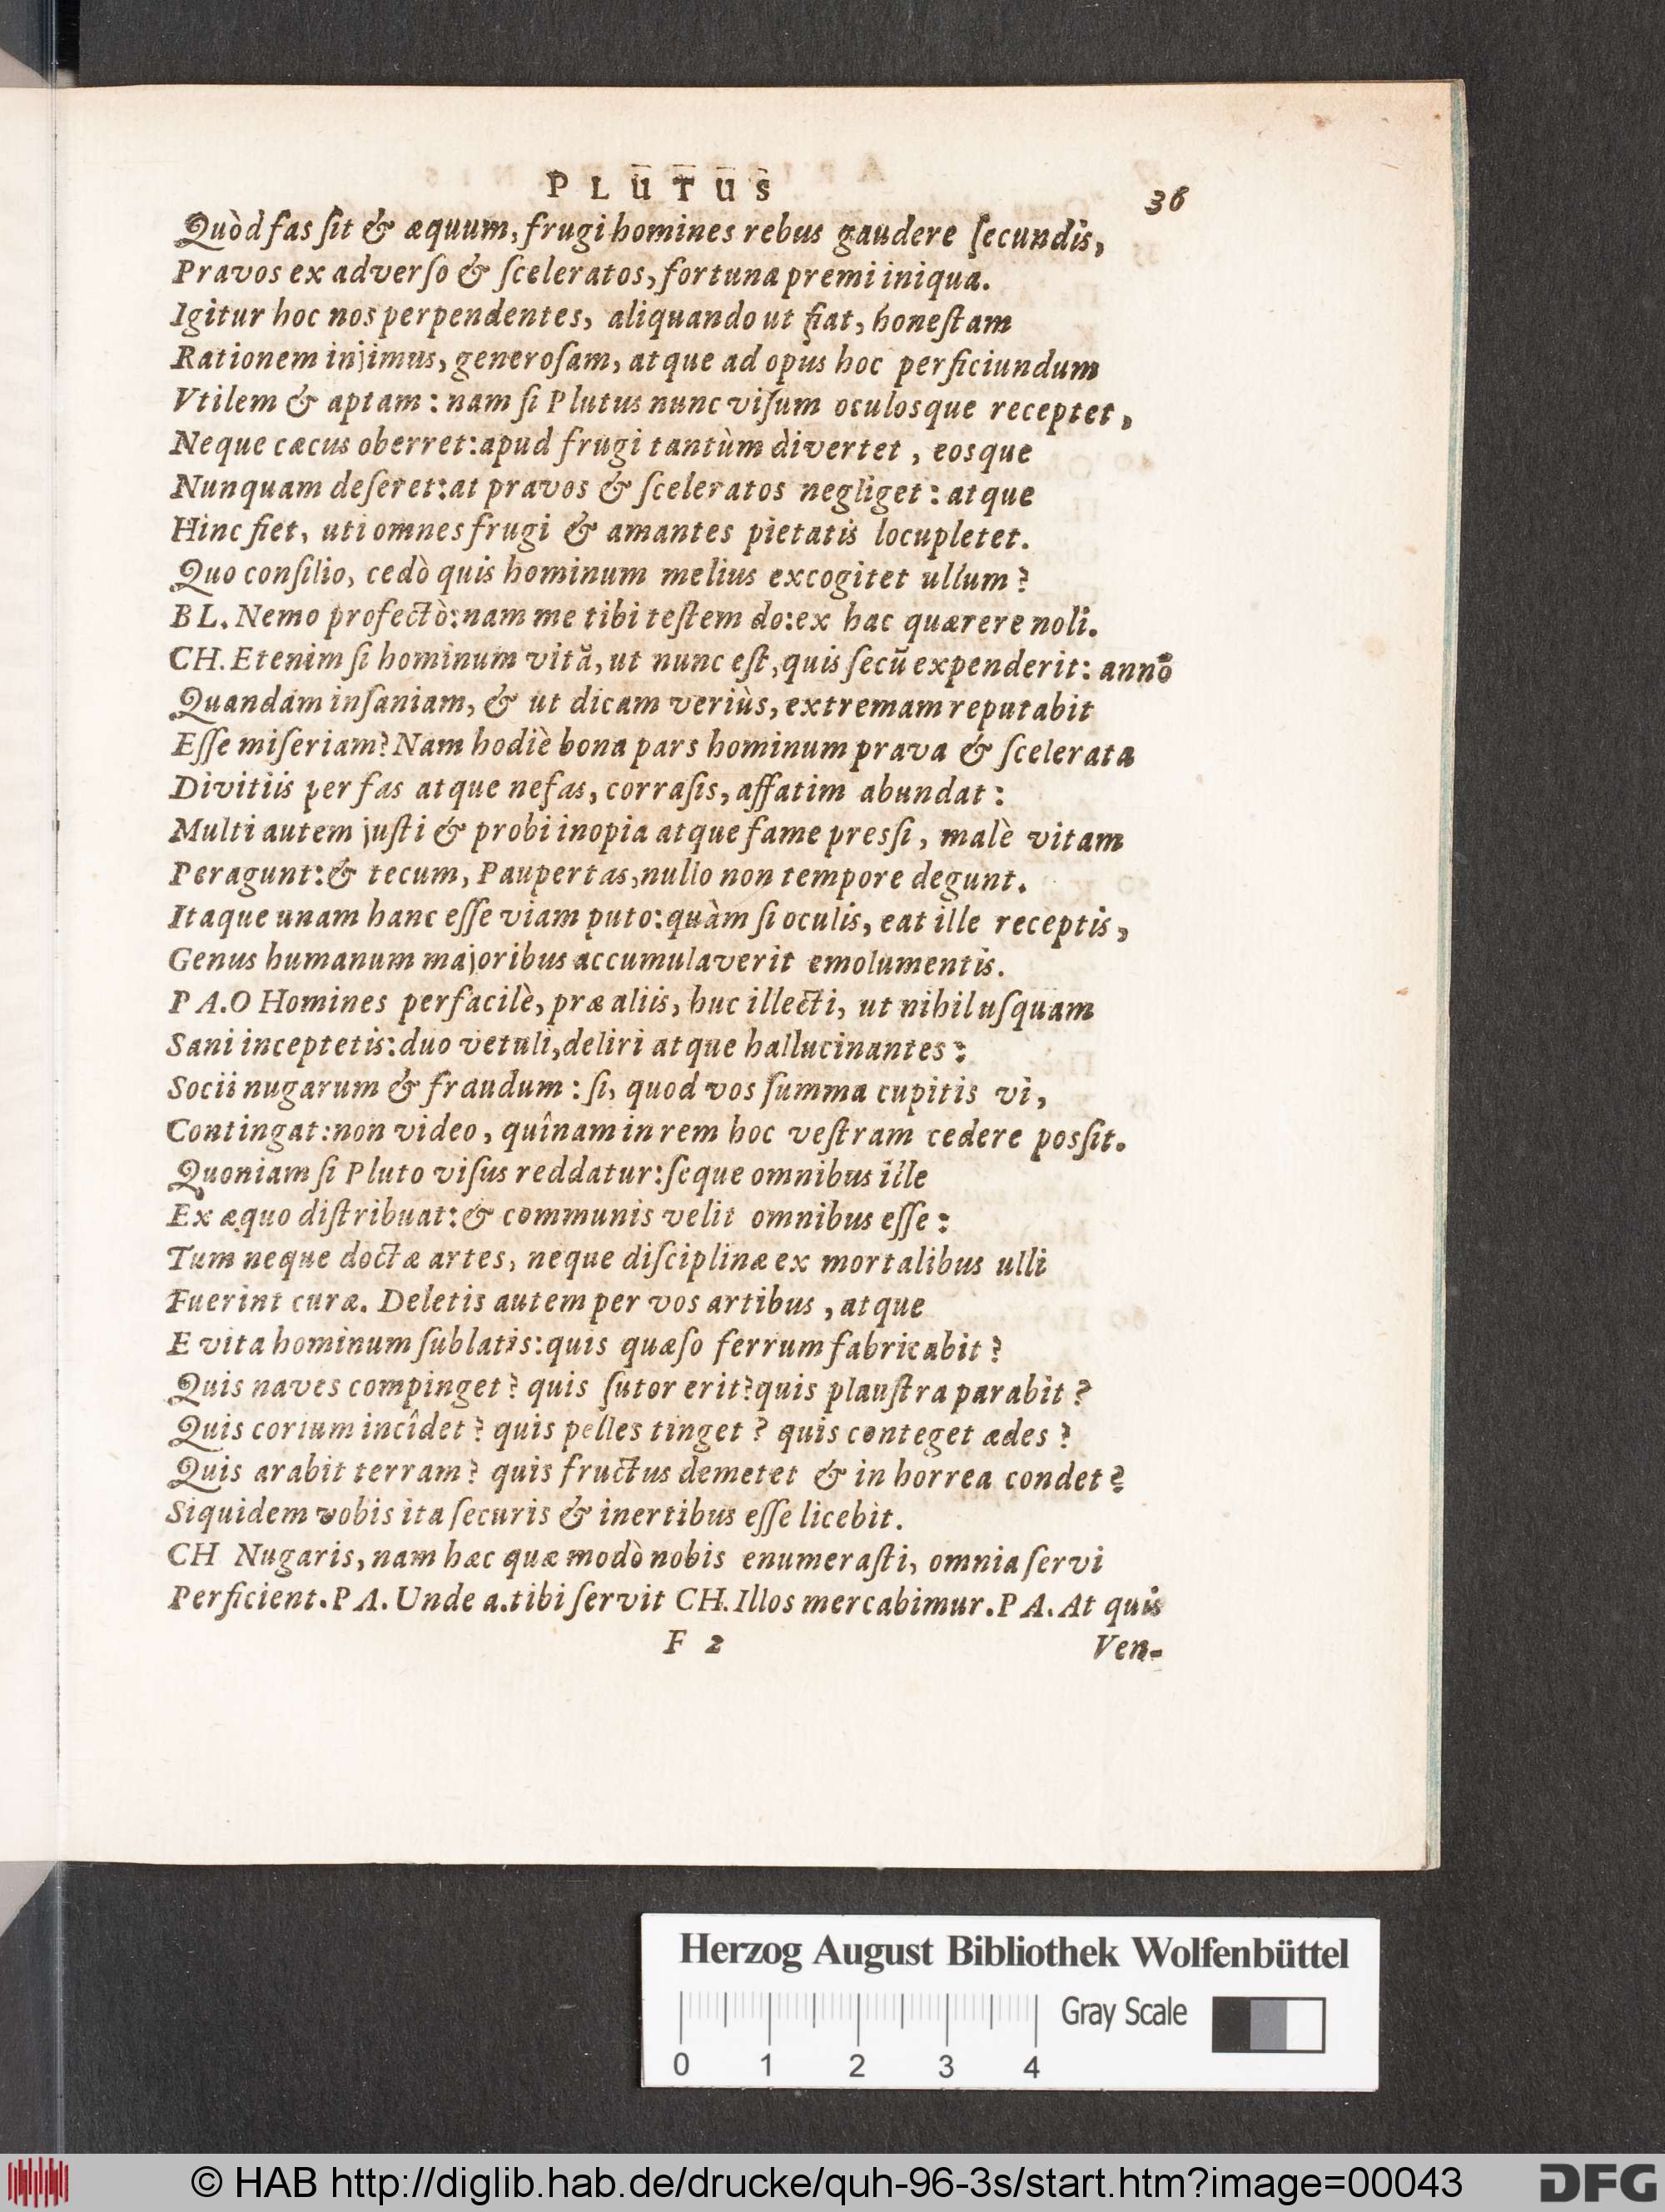 PLUTUS
36
Quòd fas ſit & æquum, frugi homines rebus gaudere ſecundis,
Pravos ex adverſo & ſceleratos, fortuna premi iniqua.
Igitur hoc nos perpendentes, aliquando ut fiat, honeſtam
Rationem injimus, generoſam, atque ad opus hoc perficiundum
Vtilem & aptam: nam ſi Plutus nunc viſum oculosque receptet,
Neque cæcus oberret: apud frugi tantùm divertet, eosque
Nunquam deſeret: at pravos & ſceleratos negliget: atque
Hinc fiet, uti omnes frugi & amantes pietatis locupletet.
Quo conſilio, cedò quis hominum melius excogitet ullum?
BL. Nemo profectò: nam me tibi teſtem do: ex hac quærere noli.
CH. Etenim ſi hominum vitã, ut nunc eſt, quis ſecũ expenderit: anno
Quandam inſaniam, & ut dicam veriùs, extremam reputabit
Eſſe miſeriam? Nam hodiè bona pars hominum prava & ſcelerata
Divitiis per fas atque nefas, corraſis, affatim abundat:
Multi autem juſti & probi inopia atque fame presſi, malè vitam
Peragunt: & tecum, Paupertas, nullo non tempore degunt.
Itaque unam hanc eſſe viam puto: quàm ſi oculis, eat ille receptis,
Genus humanum majoribus accumulaverit emolumentis.
PA. O Homines perfacilè, præ aliis, huc illecti, ut nihil uſquam
Sani inceptetis: duo vetuli, deliri atque hallucinantes:
Socii nugarum & fraudum: ſi, quod vos ſumma cupitis vi,
Contingat: non video, quînam in rem hoc veſtram cedere posſit.
Quoniam ſi Pluto viſus reddatur: ſeque omnibus ille
Ex æquo diſtribuat: & communis velit omnibus eſſe:
Tum neque doctæ artes, neque diſciplinæ ex mortalibus ulli
Fuerint curæ. Deletis autem per vos artibus, atque
E vita hominum ſublatis: quis quæſo ferrum fabricabit?
Quis naves compinget? quis ſutor erit? quis plauſtra parabit?
Quis corium incîdet? quis pelles tinget? quis conteget ædes?
Quis arabit terram? quis fructus demetet & in horrea condet?
Siquidem vobis ita ſecuris & inertibus eſſe licebit.
CH Nugaris, nam hæc quæ modò nobis enumeraſti, omnia ſervi
Perficient. PA. Unde a. tibi ſervit CH. Illos mercabimur. PA. At quis
F 2
Ven-
Herzog August Bibliothek Wolfenbüttel
Gray Scale
0 1 2 3 4
© HAB http://diglib.hab.de/drucke/quh-96-3s/start.htm?image=00043
DFG